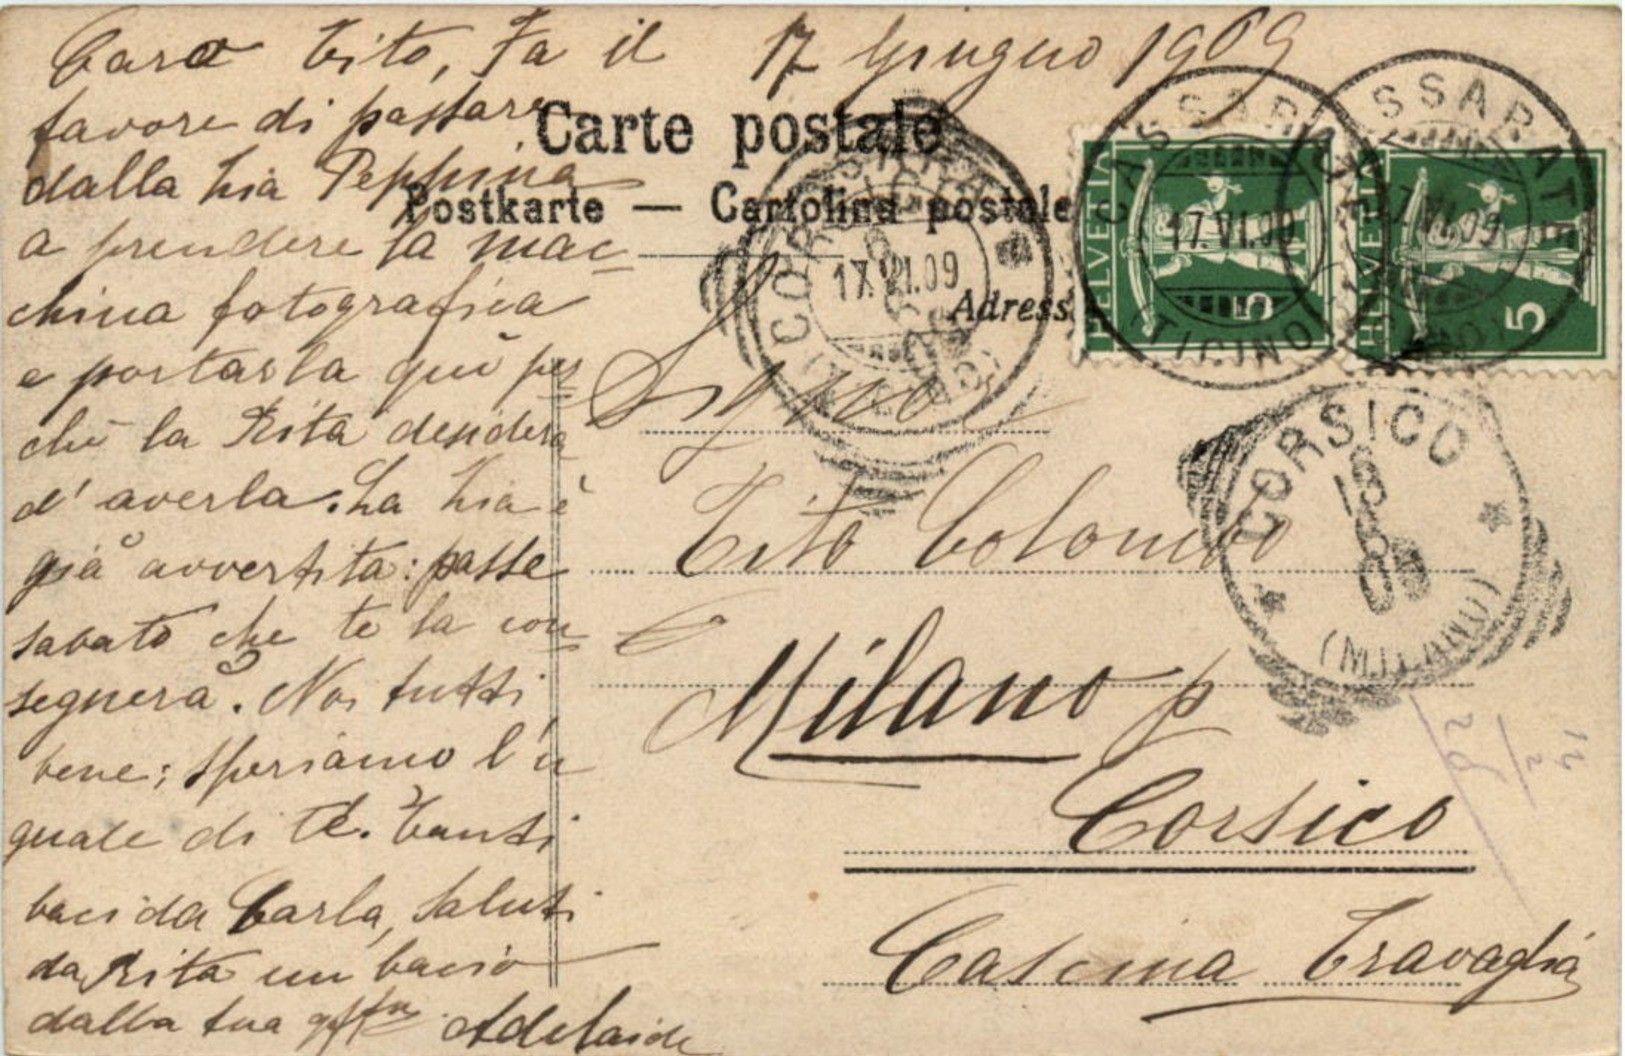 Caro Tito, Fa il 17 Giugno 1909
favore di passare
dalla zia Peppina
a prendere la mac-
china fotografica
e portarla quì per-
chè la Rita desidera
d'averla. La zia è
già avvertita: passe
sabato che te la con-
segnerà. Noi tutti
bene; speriamo l'u
guale di te. Tanti
baci da Carla, Saluti
da Rita un bacio
dalla tua Adelaide
Carte postale
Postkarte — Cartolina postale
Adress
Signo
Tito Colombo
Milano p
Corsico
Cascina Travaglia
HELVETIA
5
HELVETIA
5
CASSARATE
17.VI.09
(TICINO)
CASSARATE
17.VI.09
17.VI.09
CORSICO
(MILANO)